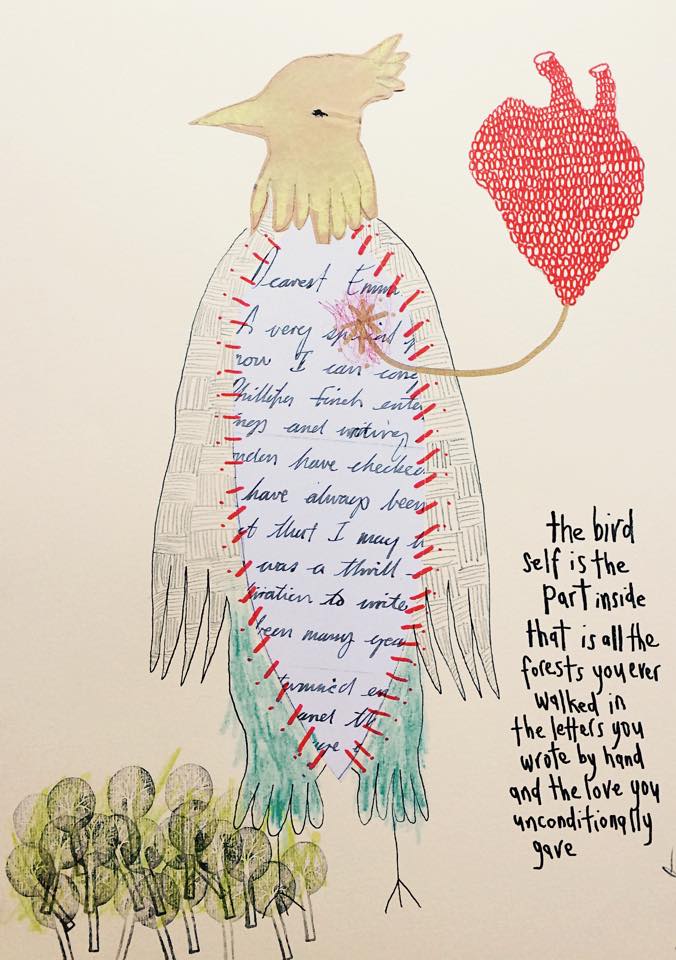 Dearest Emma
A very special
now I can
Phillipa Finch enter
ings and writing
nden have checked
have always been
t that I may
was a thrill
iration to write
been many yea
and th
the bird
self is the
part inside
that is all the
forests you ever
walked in
the letters you
wrote by hand
and the love you
unconditionally
gave